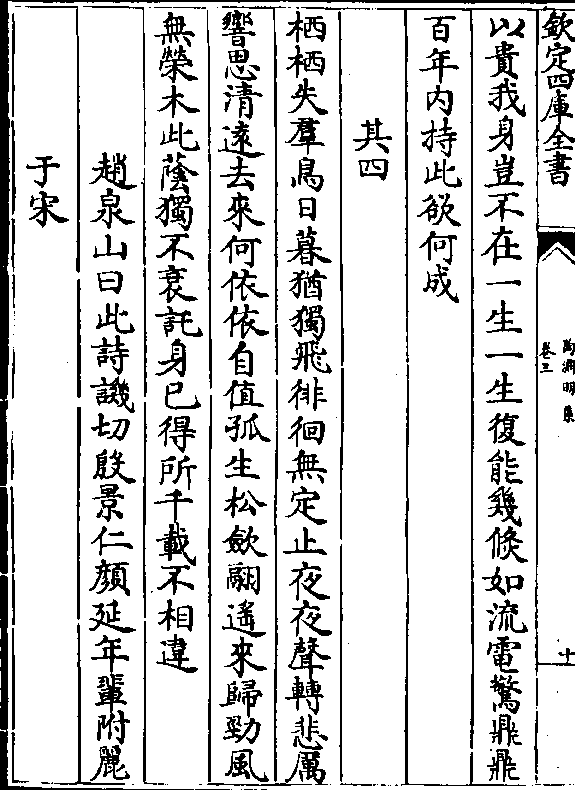 欽定四庫全書
陶淵明集
卷三
十
以貴我身豈不在一生一生復能幾倐如流電驚鼎鼎
百年內持此欲何成
其四
栖栖失羣鳥日暮猶獨飛徘徊無定止夜夜聲轉悲厲
響思清遠去來何依依自值孤生松歛翮遙來歸勁風
無榮木此蔭獨不衰託身已得所千載不相違
趙泉山曰此詩譏切殷景仁顔延年輩附麗
于宋